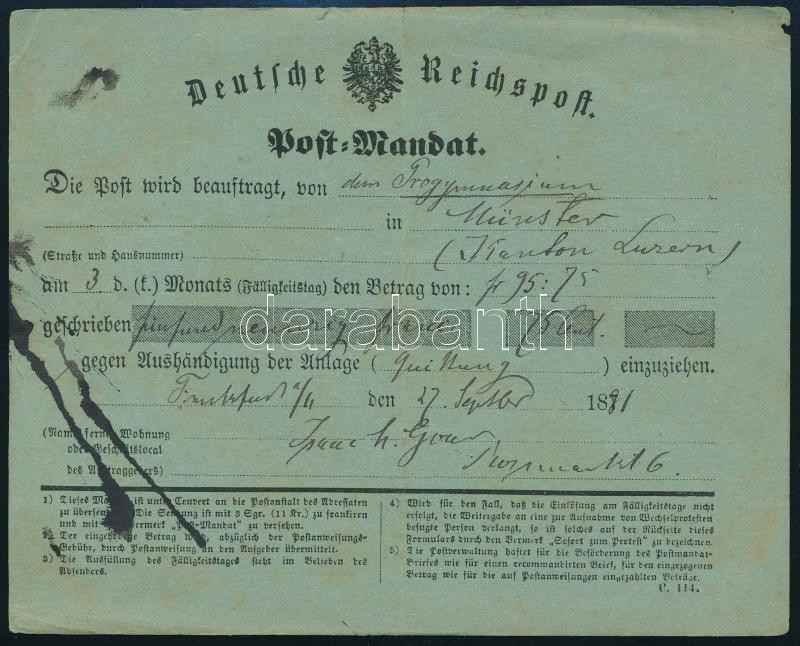 Deutsche Reichspost.
Post-Mandat.
Die Post wird beauftragt, von dem Progymnasium
in Münster
(Straße und Hausnummer) (Kanton Luzern)
am 3 d. (k.) Monats (Fälligkeitstag) den Betrag von: fr 95: 75
geschrieben fünfundneunzig francs 75 Cent.
gegen Aushändigung der Anlage (Quittung) einzuziehen.
Frankfurt a/M den 27. Septbr 1881
(Name, ferner Wohnung
oder Geschäftslocal
des Auftraggebers)
Isaac h. Rossmarkt 6.
1) Dieses Mandat ist unter Couvert an die Postanstalt des Adressaten
zu übersenden. Die Sendung ist mit 3 Sgr. (11 Kr.) zu frankiren
und mit dem Vermerk „Post-Mandat" zu versehen.
2) Der eingehobene Betrag wird, abzüglich der Postanweisungs-
Gebühr, durch Postanweisung an den Aufgeber übermittelt.
3) Die Ausfüllung des Fälligkeitstages steht im Belieben des
Absenders.
4) Wird für den Fall, daß die Einlösung am Fälligkeitstage nicht
erfolgt, die Weitergabe an eine zur Aufnahme von Wechselprotesten
befugte Person verlangt, so ist solches auf der Rückseite dieses
Formulars durch den Vermerk „Sofort zum Protest" zu bezeichnen.
5) Die Postverwaltung haftet für die Beförderung des Postmandat-
Briefes wie für einen recommandirten Brief, für den eingezogenen
Betrag wie für die auf Postanweisungen eingezahlten Beträge.
C. 114.
darabanth